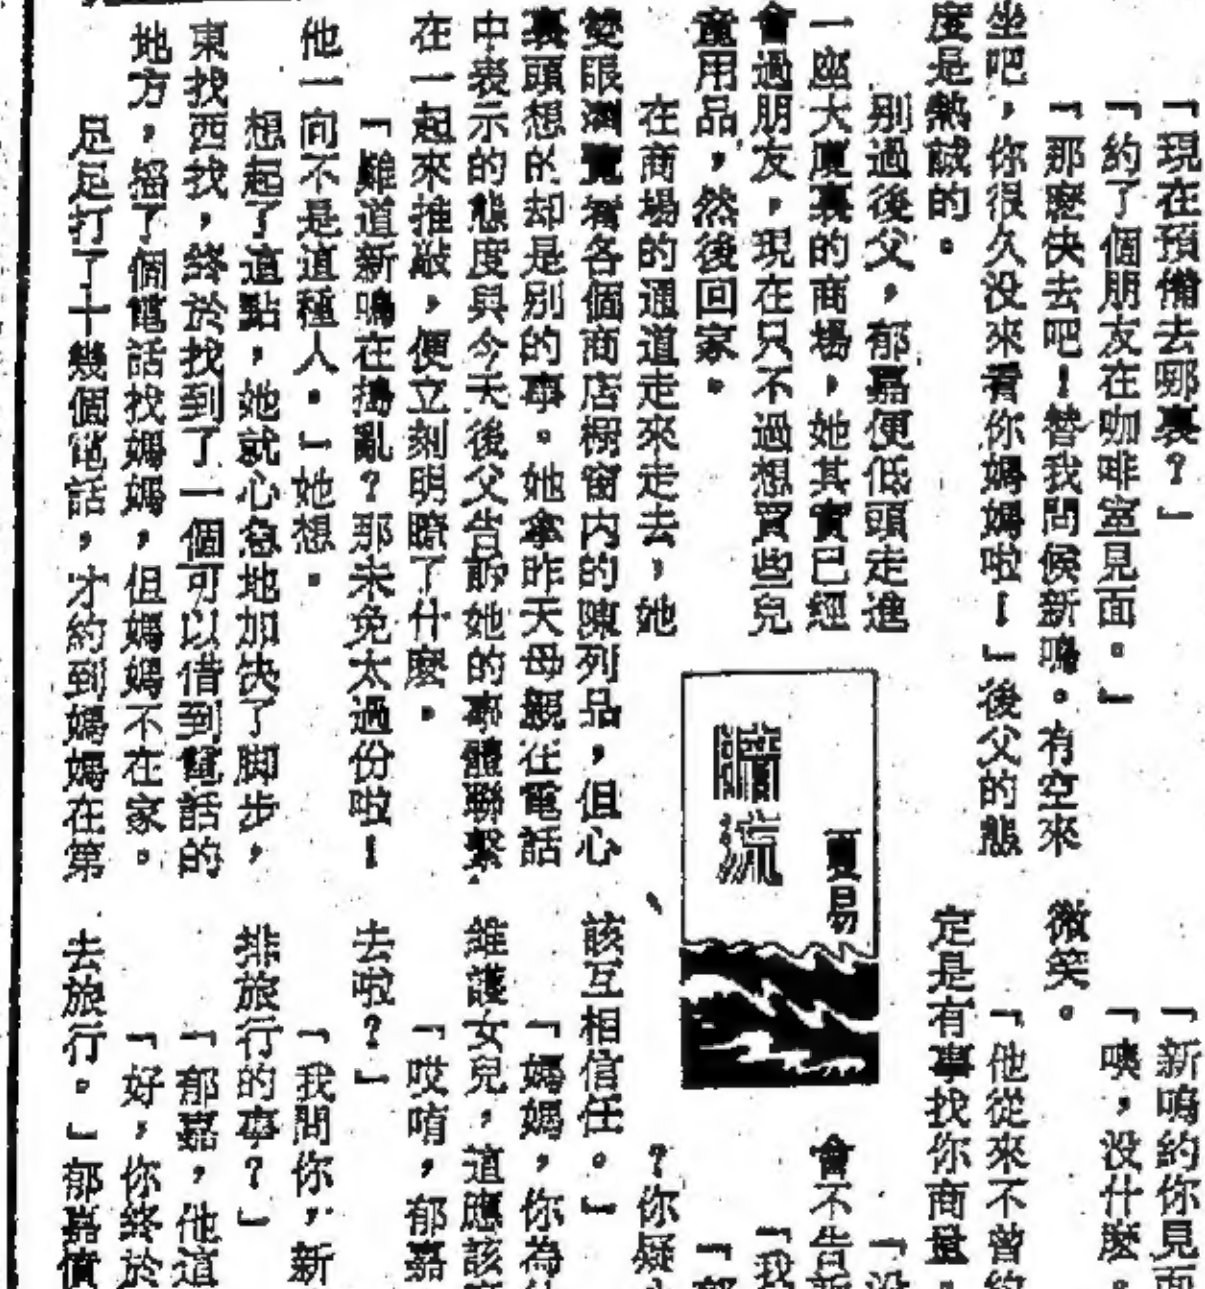 「現在預備去哪裏？」
「約了個朋友在咖啡室見面。」
「那麽快去吧！替我問候新鳴。有空來
坐吧，你很久没來看你媽媽啦！」後父的態
度是熱誠的。
别過後父，郁嘉便低頭走進
一座大廈裏的商場，她其實已經
會過朋友，現在只不過想買些兒
童用品，然後回家。
在商場的通道走來走去，她
雙眼瀏覽着各個商店櫥窗内的陳列品，但心
裏頭想的却是别的事。她拿昨天母親在電話
中表示的態度與今天後父告訴她的事體聯繫
在一起來推敲，便立刻明瞭了什麽。
「難道新鳴在搗亂？那未免太過份啦！
他一向不是這種人。」她想。
想起了這點，她就心急地加快了脚步，
東找西找，終於找到了一個可以借到電話的
地方，搖了個電話找媽媽，但媽媽不在家。
足足打了十幾個電話，才約到媽媽在第
暗流
夏易
「新鳴約你見面
「噢，没什麽。
微笑。
「他從來不曾約
定是有事找你商量，
「没
會不告新
「我
？你疑
該互相信任。」
「媽媽，你為什
維護女兒，這應該
「哎唷，郁嘉
去啦？」
「我問你，新
排旅行的事？」
「郁嘉，他這
「好，你終於
去旅行。」郁嘉憤